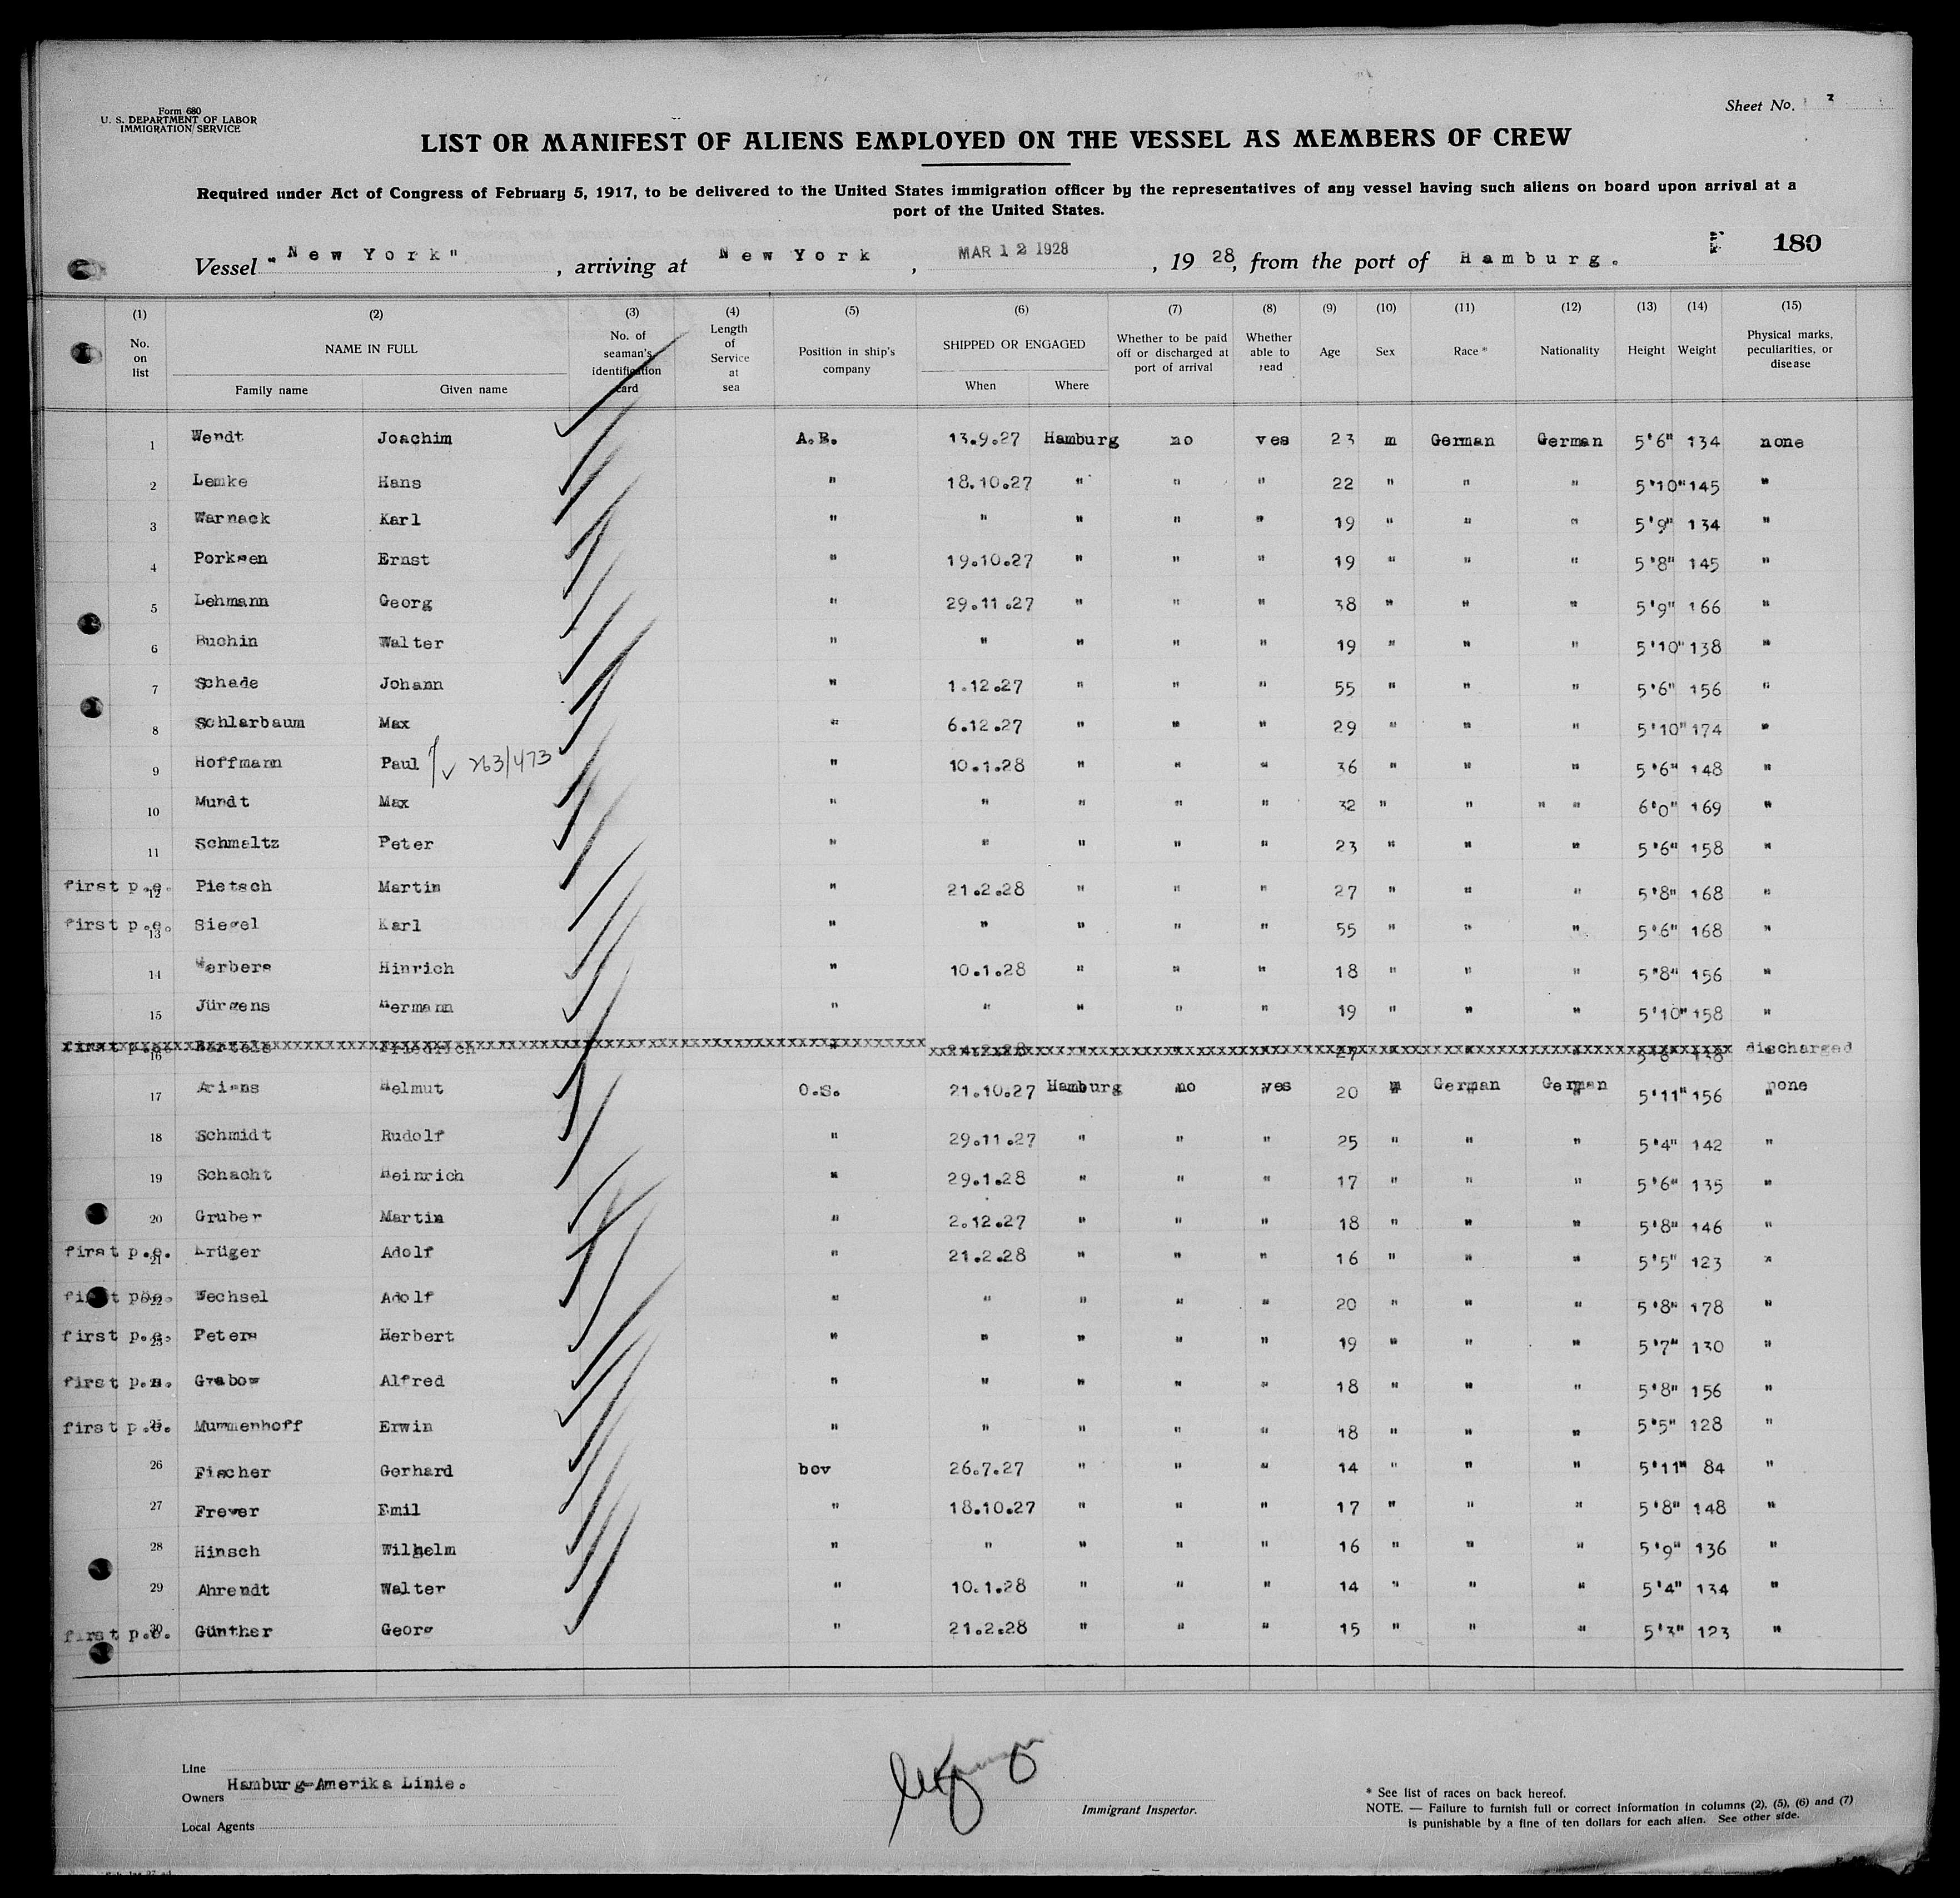 Form 680
U. S. DEPARTMENT OF LABOR
IMMIGRATION SERVICE
Sheet No. 3
LIST OR MANIFEST OF ALIENS EMPLOYED ON THE VESSEL AS MEMBERS OF CREW
Required under Act of Congress of February 5, 1917, to be delivered to the United States immigration officer by the representatives of any vessel having such aliens on board upon arrival at a
port of the United States.
180
Vessel "New York", arriving at New York, MAR 12 1928, 1928, from the port of Hamburg.
(1) (2) (3) (4) (5) (6) (7) (8) (9) (10) (11) (12) (13) (14) (15)
No. on list NAME IN FULL Family name Given name No. of seaman's identification card Length of Service at sea Position in ship's company SHIPPED OR ENGAGED When Where Whether to be paid off or discharged at port of arrival Whether able to read Age Sex Race * Nationality Height Weight Physical marks, peculiarities, or disease
1 Wendt Joachim A.B. 13.9.27 Hamburg no yes 23 m German German 5'6" 134 none
2 Lemke Hans " 18.10.27 " " " 22 " " " 5'10" 145 "
3 Warnack Karl " " " " " 19 " " " 5'9" 134 "
4 Porksen Ernst " 19.10.27 " " " 19 " " " 5'8" 145 "
5 Lehmann Georg " 29.11.27 " " " 38 " " " 5'9" 166 "
6 Buchin Walter " " " " " 19 " " " 5'10" 138 "
7 Schade Johann " 1.12.27 " " " 55 " " " 5'6" 156 "
8 Schlarbaum Max " 6.12.27 " " " 29 " " " 5'10" 174 "
9 Hoffmann Paul 263/473 " 10.1.28 " " " 36 " " " 5'6" 148 "
10 Mundt Max " " " " " 32 " " " " 6'0" 169 "
11 Schmaltz Peter " " " " " 23 " " " 5'6" 158 "
first p.e. 12 Pietsch Martin " 21.2.28 " " " 27 " " " 5'8" 168 "
first p.e. 13 Siegel Karl " " " " " 55 " " " 5'6" 168 "
14 Werbers Hinrich " 10.1.28 " " " 18 " " " 5'8" 156 "
15 Jürgens Hermann " " " " " 19 " " " 5'10" 158 "
first p.e. 16 Bartels Friedrich " " " " 27 " " " 5'8" 158 discharged
17 Ariens Helmut O.S. 21.10.27 Hamburg no yes 20 m German German 5'11" 156 none
18 Schmidt Rudolf " 29.11.27 " " " 25 " " " 5'4" 142 "
19 Schacht Heinrich " 29.1.28 " " " 17 " " " 5'6" 135 "
20 Gruber Martin " 2.12.27 " " " 18 " " " 5'8" 146 "
first p.e. 21 Krüger Adolf " 21.2.28 " " " 16 " " " 5'5" 123 "
first p.e. 22 Wechsel Adolf " " " " " 20 " " " 5'8" 178 "
first p.e. 23 Peters Herbert " " " " " 19 " " " 5'7" 130 "
first p.e. Grabow Alfred " " " " " 18 " " " 5'8" 156 "
first p.e. 25 Mummenhoff Erwin " " " " " 18 " " " 5'5" 128 "
26 Fischer Gerhard boy 26.7.27 " " " 14 " " " 5'11" 84 "
27 Freyer Emil " 18.10.27 " " " 17 " " " 5'8" 148 "
28 Hinsch Wilhelm " " " " " 16 " " " 5'9" 136 "
29 Ahrendt Walter " 10.1.28 " " " 14 " " " 5'4" 134 "
first p.e. 30 Günther Georg " 21.2.28 " " " 15 " " " 5'3" 123 "
Line
Owners Hamburg-Amerika Linie.
Local Agents
Immigrant Inspector.
* See list of races on back hereof.
NOTE. — Failure to furnish full or correct information in columns (2), (5), (6) and (7)
is punishable by a fine of ten dollars for each alien. See other side.